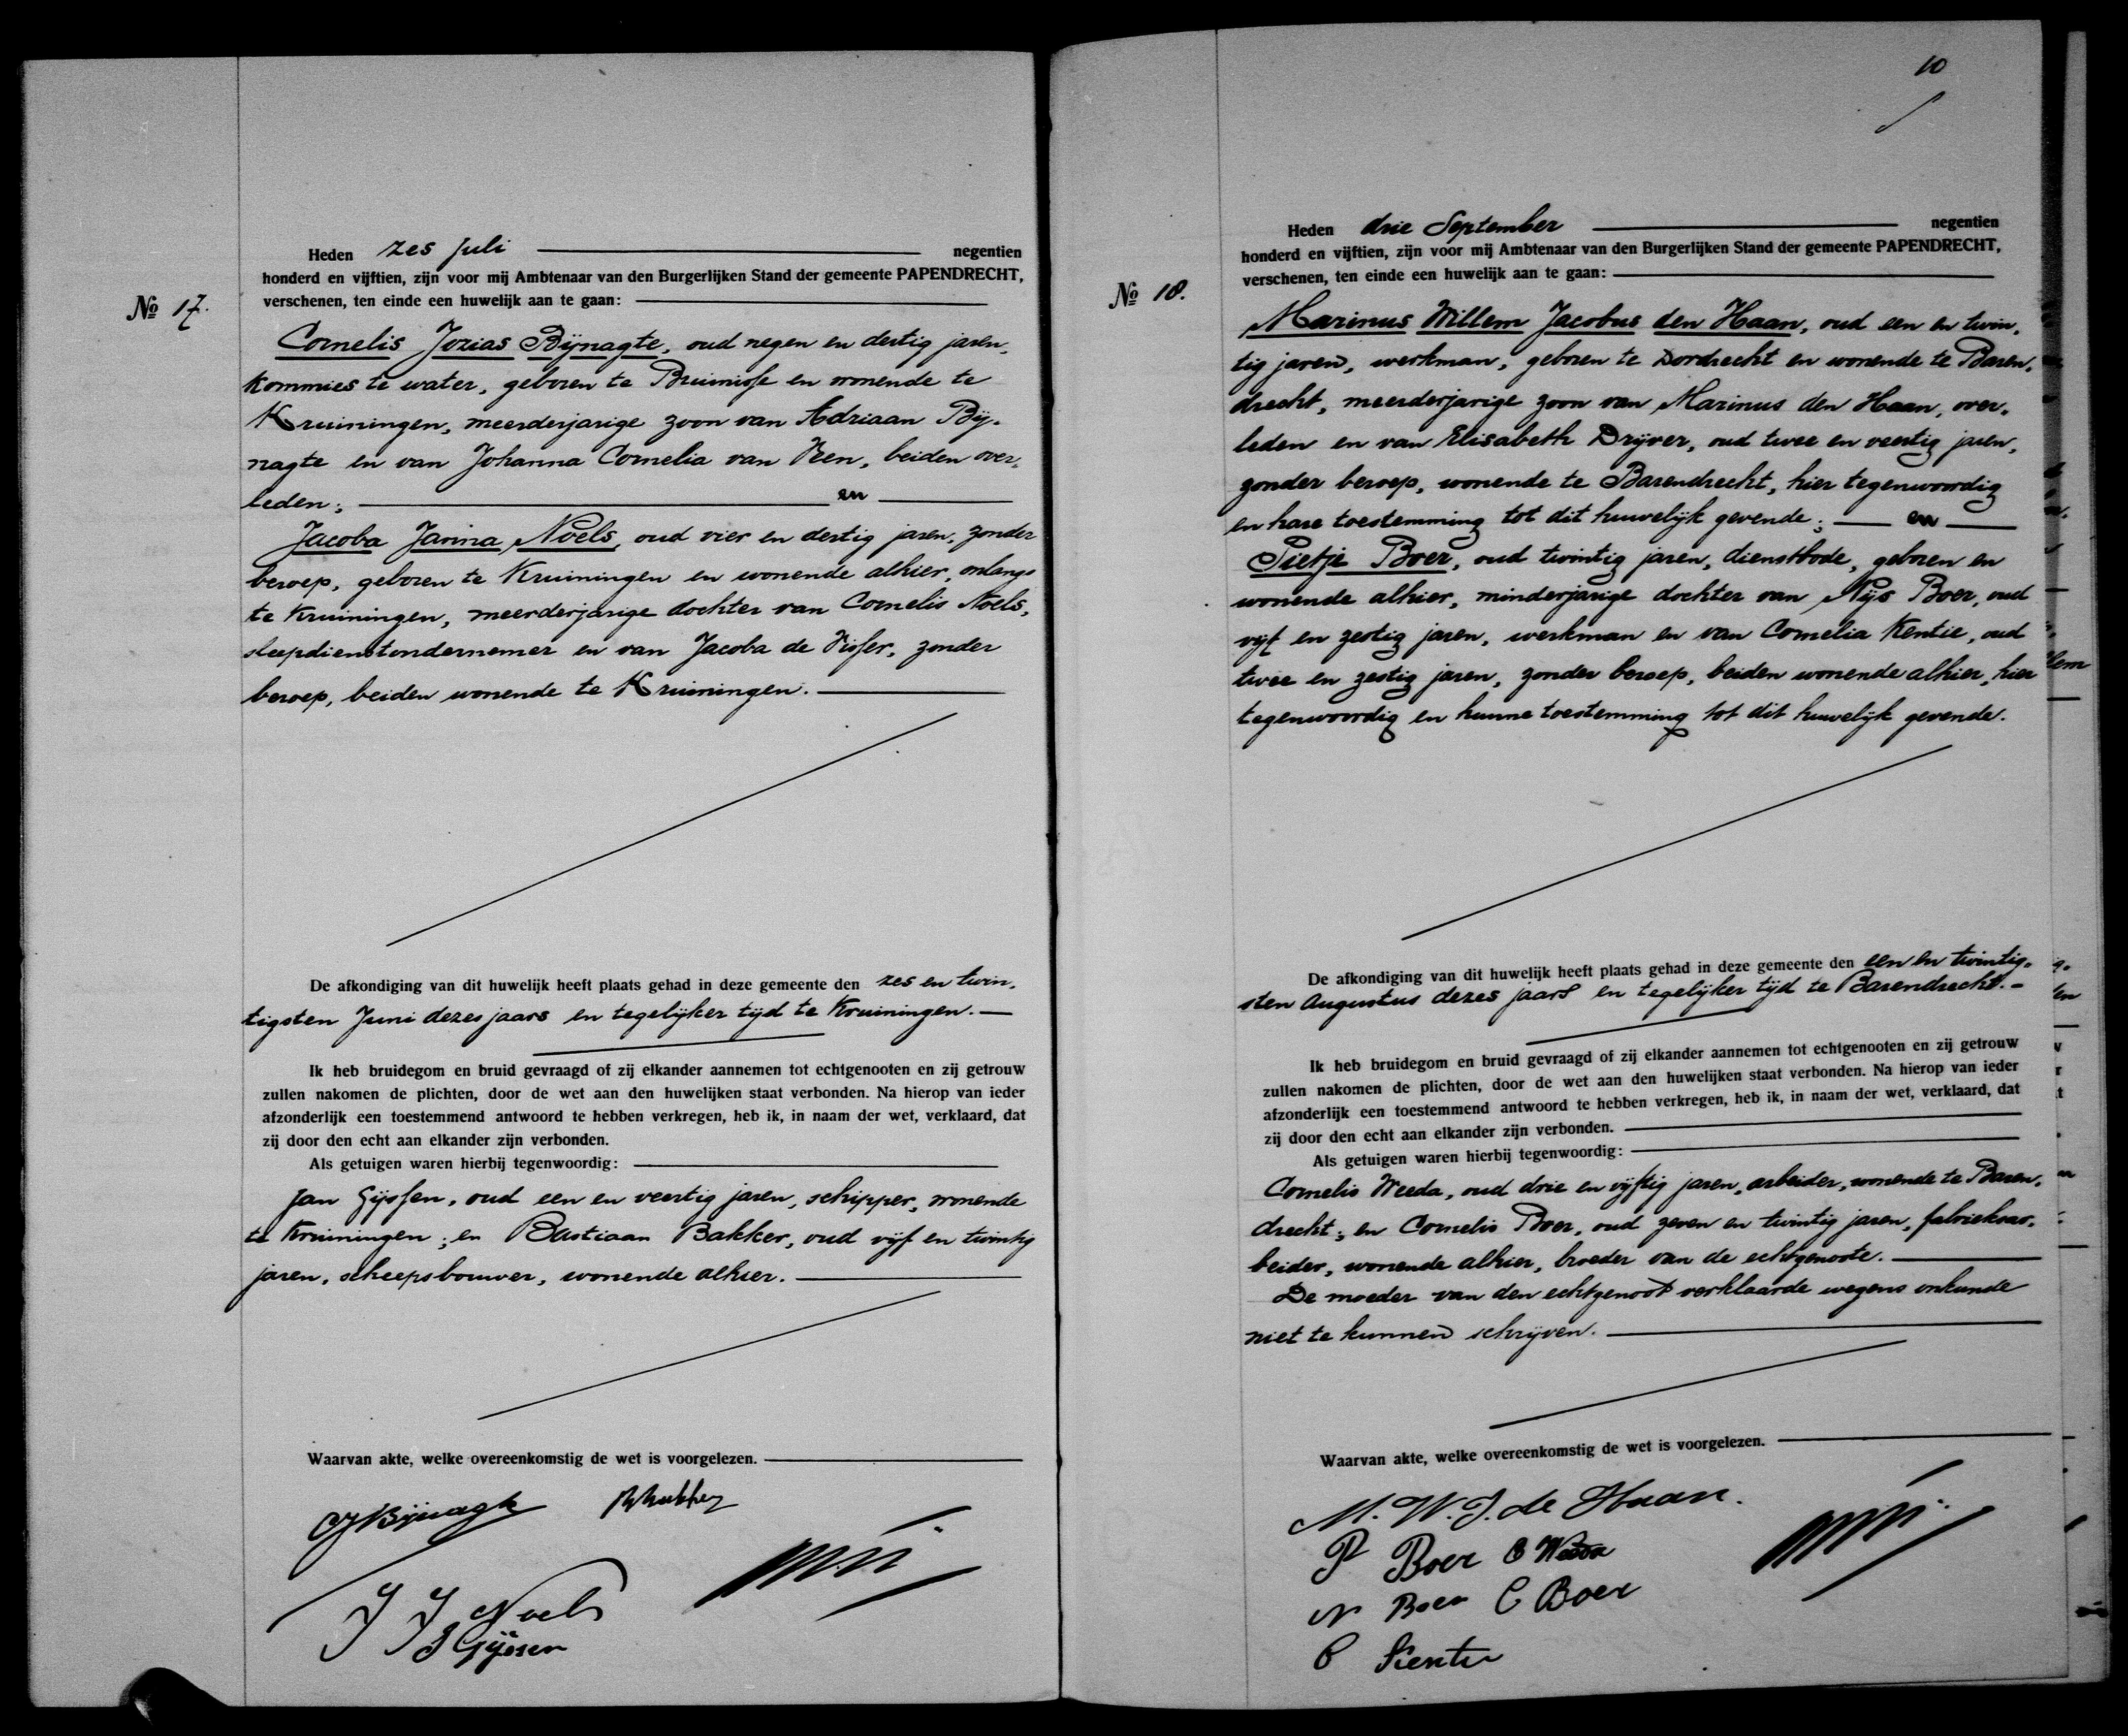 Heden zes Juli negentien
honderd en vijftien, zijn voor mij Ambtenaar van den Burgerlijken Stand der gemeente PAPENDRECHT,
verschenen, ten einde een huwelijk aan te gaan:
No 17.
Cornelis Jozias Bijnagte, oud negen en dertig jaren,
kommies te water, geboren te Bruinisse en wonende te
Kruiningen, meerderjarige zoon van Adriaan Bij-
nagte en van Johanna Cornelia van Veen, beiden over-
leden; en
Jacoba Janina Noels, oud vier en dertig jaren, zonder
beroep, geboren te Kruiningen en wonende alhier, onlangs
te Kruiningen, meerderjarige dochter van Cornelis Noels,
sleepdienstondernemer en van Jacoba de Visser, zonder
beroep, beiden wonende te Kruiningen.
De afkondiging van dit huwelijk heeft plaats gehad in deze gemeente den zes en twin-
tigsten Juni dezes jaars en tegelijker tijd te Kruiningen.
Ik heb bruidegom en bruid gevraagd of zij elkander aannemen tot echtgenooten en zij getrouw
zullen nakomen de plichten, door de wet aan den huwelijken staat verbonden. Na hierop van ieder
afzonderlijk een toestemmend antwoord te hebben verkregen, heb ik, in naam der wet, verklaard, dat
zij door den echt aan elkander zijn verbonden.
Als getuigen waren hierbij tegenwoordig:
Jan Gijssen, oud een en veertig jaren, schipper, wonende
te Kruiningen; en Bastiaan Bakker, oud vijf en twintig
jaren, scheepsbouwer, wonende alhier.
Waarvan akte, welke overeenkomstig de wet is voorgelezen.
CJ Bijnagte B Bakker
J J Noels
J Gijssen
10
Heden drie September negentien
honderd en vijftien, zijn voor mij Ambtenaar van den Burgerlijken Stand der gemeente PAPENDRECHT,
verschenen, ten einde een huwelijk aan te gaan:
No 18.
Marinus Willem Jacobus den Haan, oud een en twin-
tig jaren, werkman, geboren te Dordrecht en wonende te Baren-
drecht, meerderjarige zoon van Marinus den Haan, over-
leden en van Elisabeth Drijver, oud twee en veertig jaren,
zonder beroep, wonende te Barendrecht, hier tegenwoordig
en hare toestemming tot dit huwelijk gevende; en
Pietje Boer, oud twintig jaren, dienstbode, geboren en
wonende alhier, minderjarige dochter van Nijs Boer, oud
vijf en zestig jaren, werkman en van Cornelia Kentie, oud
twee en zestig jaren, zonder beroep, beiden wonende alhier, hier
tegenwoordig en hunne toestemming tot dit huwelijk gevende.
De afkondiging van dit huwelijk heeft plaats gehad in deze gemeente den een en twintig-
sten Augustus dezes jaars en tegelijker tijd te Barendrecht.
Ik heb bruidegom en bruid gevraagd of zij elkander aannemen tot echtgenooten en zij getrouw
zullen nakomen de plichten, door de wet aan den huwelijken staat verbonden. Na hierop van ieder
afzonderlijk een toestemmend antwoord te hebben verkregen, heb ik, in naam der wet, verklaard, dat
zij door den echt aan elkander zijn verbonden.
Als getuigen waren hierbij tegenwoordig:
Cornelis Weeda, oud drie en vijftig jaren, arbeider, wonende te Baren-
drecht; en Cornelis Boer, oud zeven en twintig jaren, fabrieksar-
beider, wonende alhier, broeder van de echtgenoote.
De moeder van den echtgenoot verklaarde wegens onkunde
niet te kunnen schrijven.
Waarvan akte, welke overeenkomstig de wet is voorgelezen.
M. W. J. de Haan.
P Boer C Weeda
N Boer C Boer
C Kentie